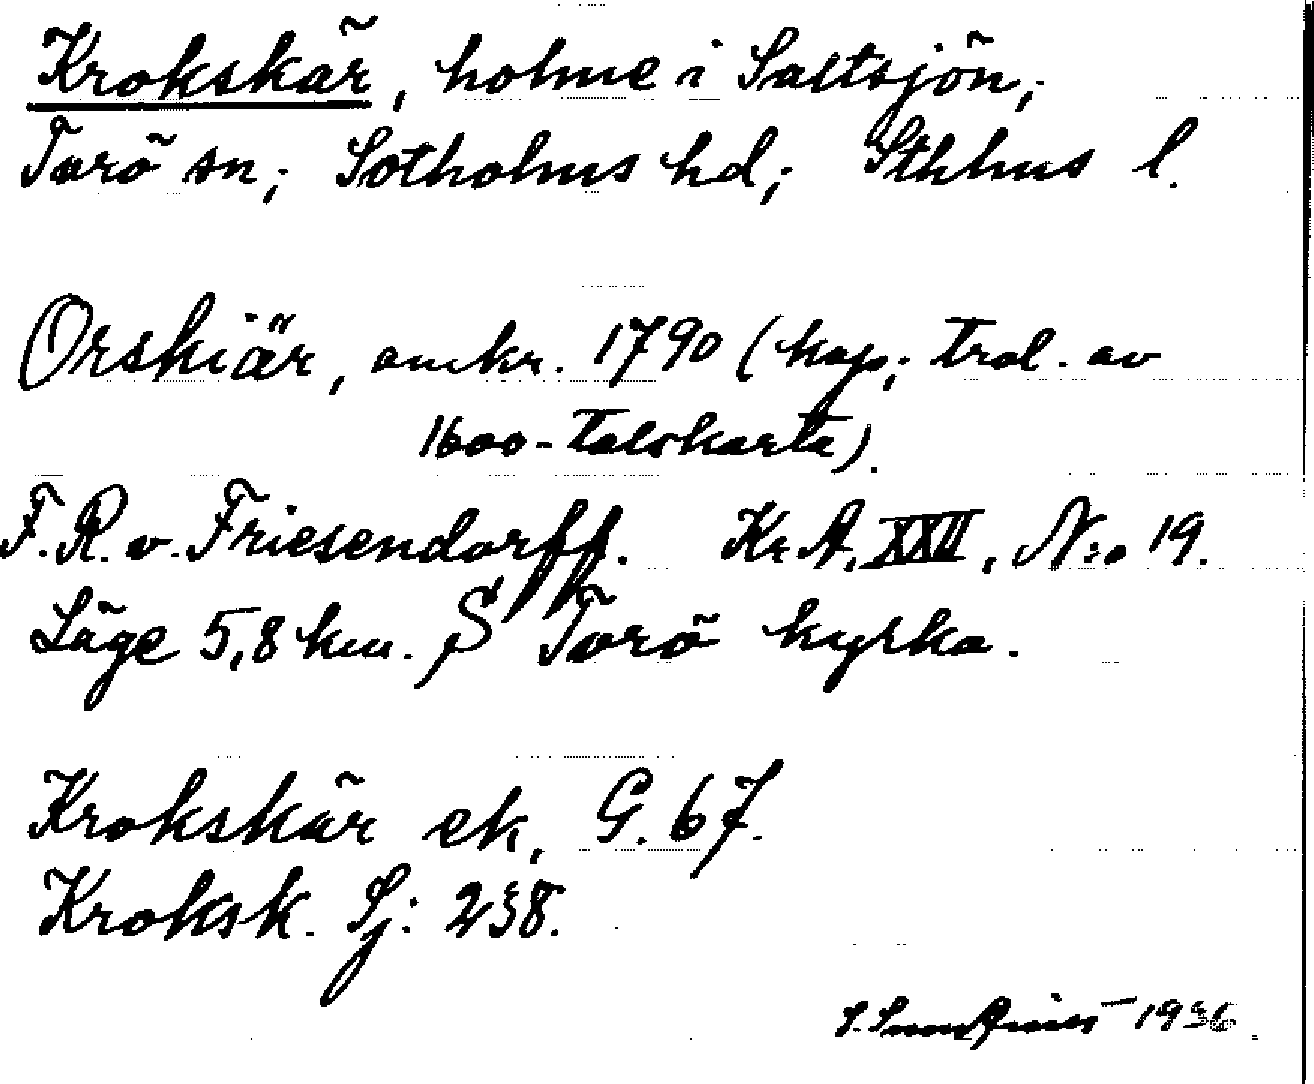 Krokskär, holme i Saltsjön,
Torö sn; Sotholms hd; Sthlms l.
Orskiär, omkr. 1790 (kop; trol. av
1600-talskarta).
F.R.v.Friesendorff. Kr.A. XXII, N:o 19.
Läge 5,8 km. S Torö kyrka.
Krokskär ek, G. 67.
Kroksk. Sj: 238.
1936.